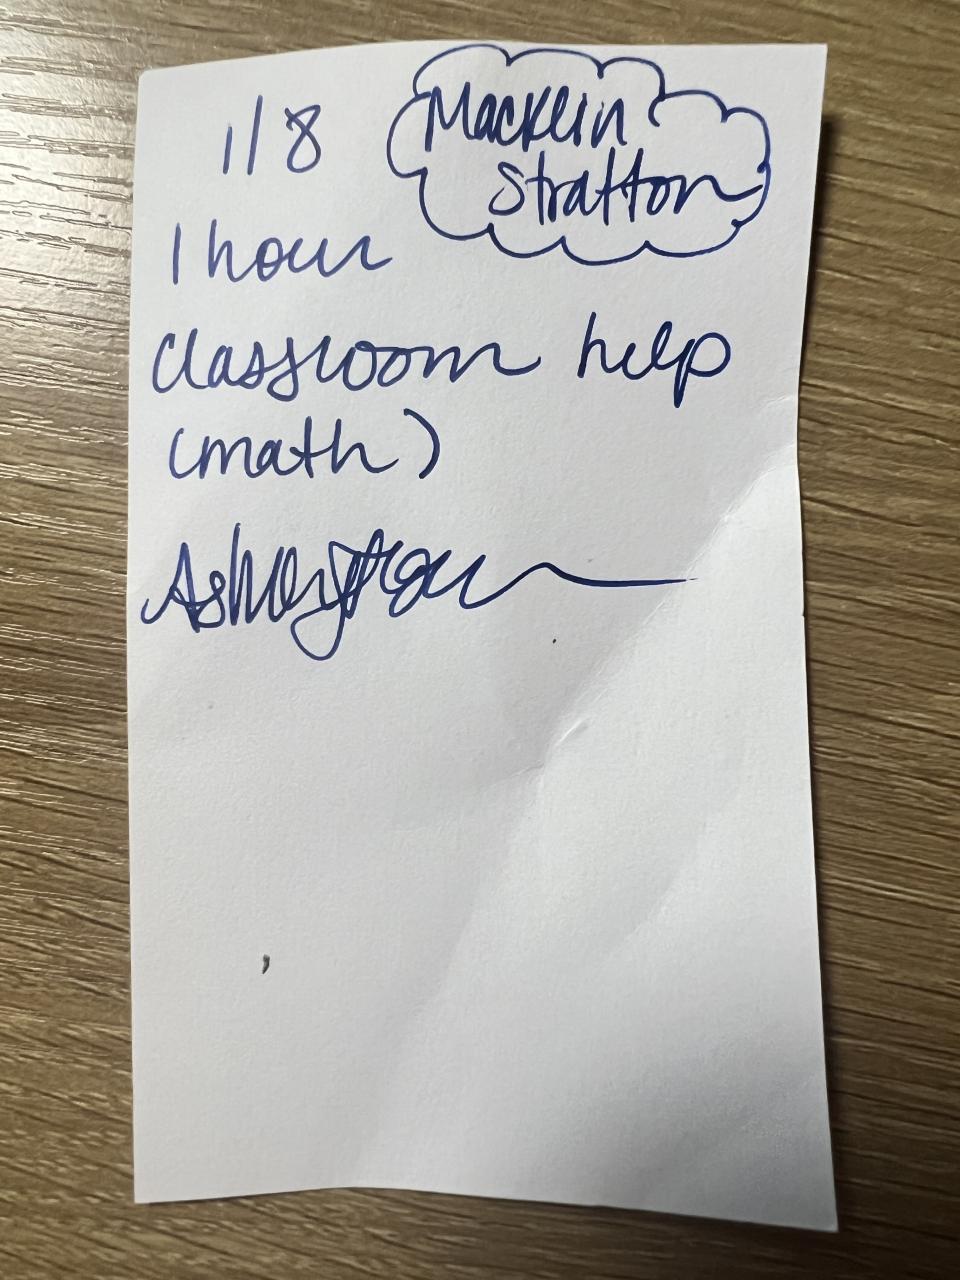 1/8
Macklin
Stratton
1 hour
classroom help
(math)
Ashley